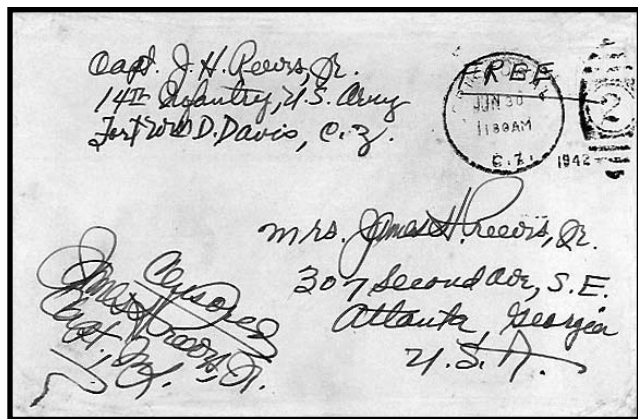 Capt. J. H. Reeves, Jr.
14th Infantry, U.S. Army
Fort Wm D. Davis, C.Z.
FREE
JUN 30
11 30 AM
C.Z.
1942
2
Mrs. James H. Reeves, Jr.
307 Second Ave, S.E.
Atlanta, Georgia
U.S.A.
Censored
James H. Reeves, Jr.
Capt, Inf.